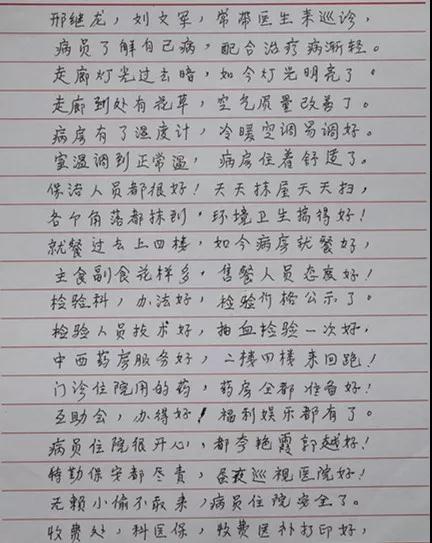 邢继龙，刘文军，常带医生来巡诊，
病员了解自己病，配合治疗病渐轻。
走廊灯光过去暗，如今灯光明亮了。
走廊到处有花草，空气质量改善了。
病房有了温度计，冷暖空调易调好。
室温调到正常温，病房住着舒适了。
保洁人员都很好！天天抹屋天天扫，
各个角落都抹到，环境卫生搞得好！
就餐过去上四楼，如今病房就餐好，
主食副食花样多，售餐人员态度好！
检验科，办法好，检验价格公示了。
检验人员技术好，抽血检验一次好，
中西药房服务好，二楼四楼来回跑！
门诊住院用的药，药房全都准备好！
互助会，办得好！福利娱乐都有了。
病员住院很开心，都夸艳霞郭越好！
特勤保安都尽责，昼夜巡视医院好！
无赖小偷不敢来，病员住院安全了。
收费处，科医保，收费医补打印好，